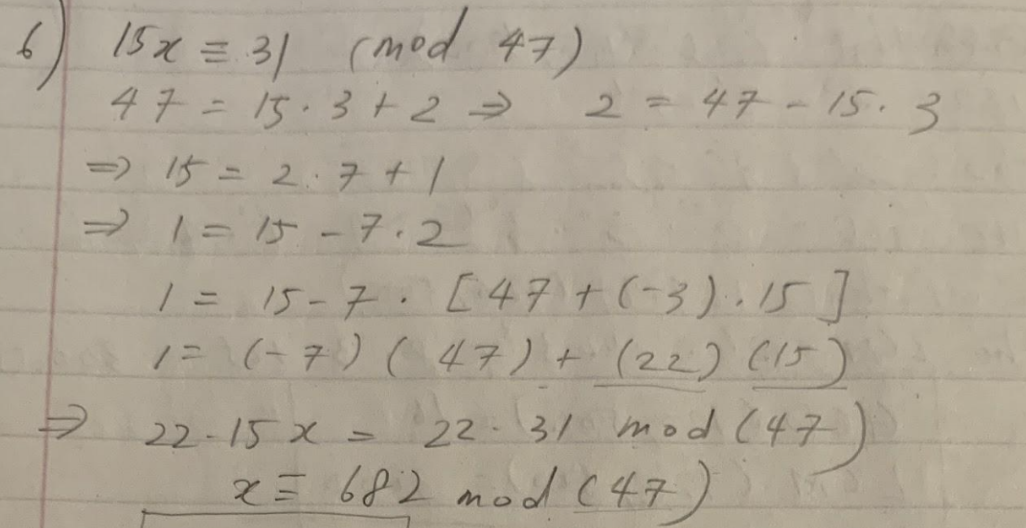 6) 15x ≡ 31 (mod 47)
47 = 15·3 + 2 ⇒ 2 = 47 - 15·3
⇒ 15 = 2·7 + 1
⇒ 1 = 15 - 7·2
1 = 15 - 7·[47 + (-3).15]
1 = (-7)(47) + (22)(15)
⇒ 22·15x = 22·31 mod (47)
x ≡ 682 mod (47)